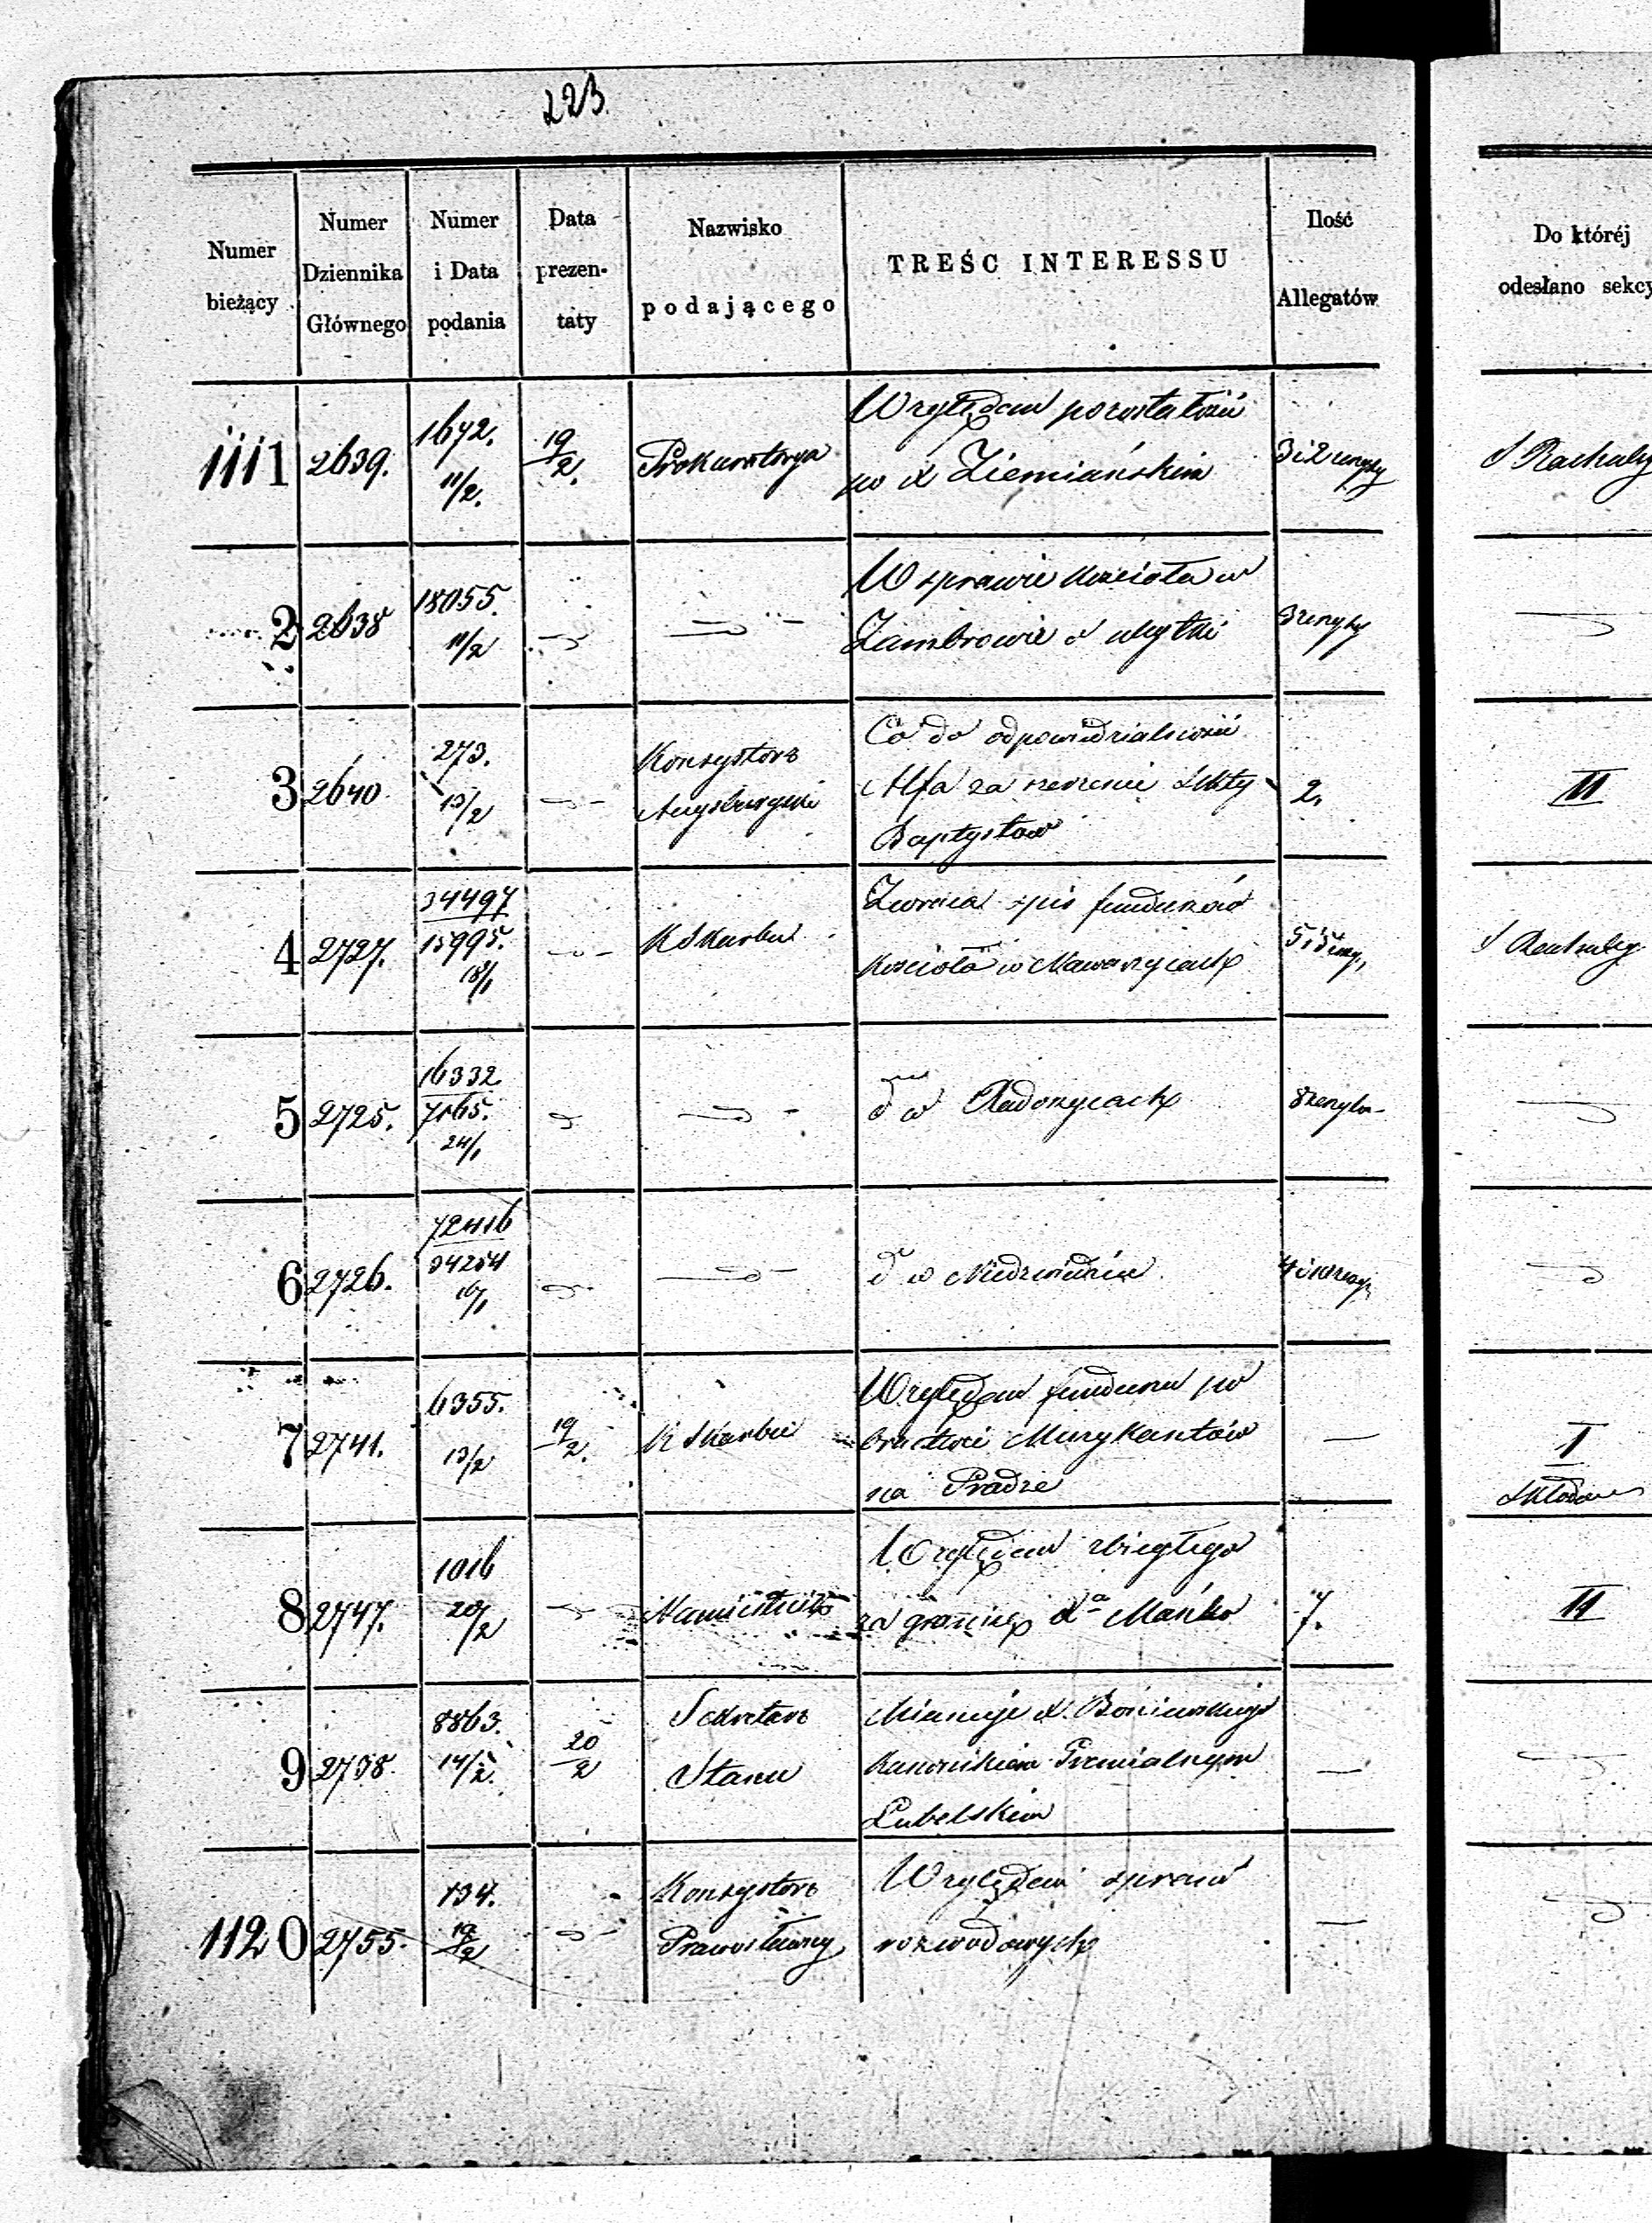 223.
Numer bieżący
Numer Dziennika Głównego
Numer i Data podania
Data prezentaty
Nazwisko podającego
TREŚC INTERESSU
Ilość Allegatów
Do któréj odesłano sekcy
1111 2639. 1672. 11/2. 19/2. Prokuratorya
Względem pozostałości
po X Ziemiańskim
3 i 2
S Rachuby
2 2638 18055. 11/2
W sprawie kościoła w
Zambrowie o
3
3 2640 273. 13/2 Konsystorz
Augsburgski
Co do odpowiedzialności
Alfa za szerzenie Sekty
Baptystów
2.
II
4 2727. 34497/15995. 18/1 K Skarbu
Zwraca spis funduszów
kościoła w
5 i
S Rachuby
5 2725. 16332/7065. 24/1
do w Radoszycach
8
6 2726. 72416/34254 16/1
do w Niedzwiedziu
4 i
7 2741. 6355. 13/2 19/2. K Skarbu
Względem funduszu po
bractwie Muzykantów
na Pradze
—
I
8 2747. 1016 20/2 Namiestnik
Względem zbiegłego
za granicę Xa Mańko
7.
II
9 2738. 8863. 14/2. 20/2 Sekretarz
Stanu
Mianuje X.
Kanonikiem Gremialnym
Lubelskim
—
1120 2755. 134. 19/2 Konsystorz
Prawosławny
Względem spraw
rozwodowych
—